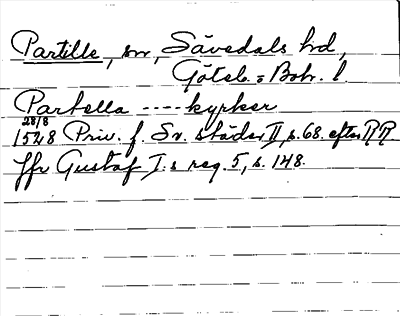 Partille, sn, Sävedals hd,
Göteb. o Boh. l
Partella ---- kyrker
28/8
1528 Priv. f. Sv. städer II, s. 68. efter R.R.
Jfr Gustaf I:s reg. 5, s. 148.